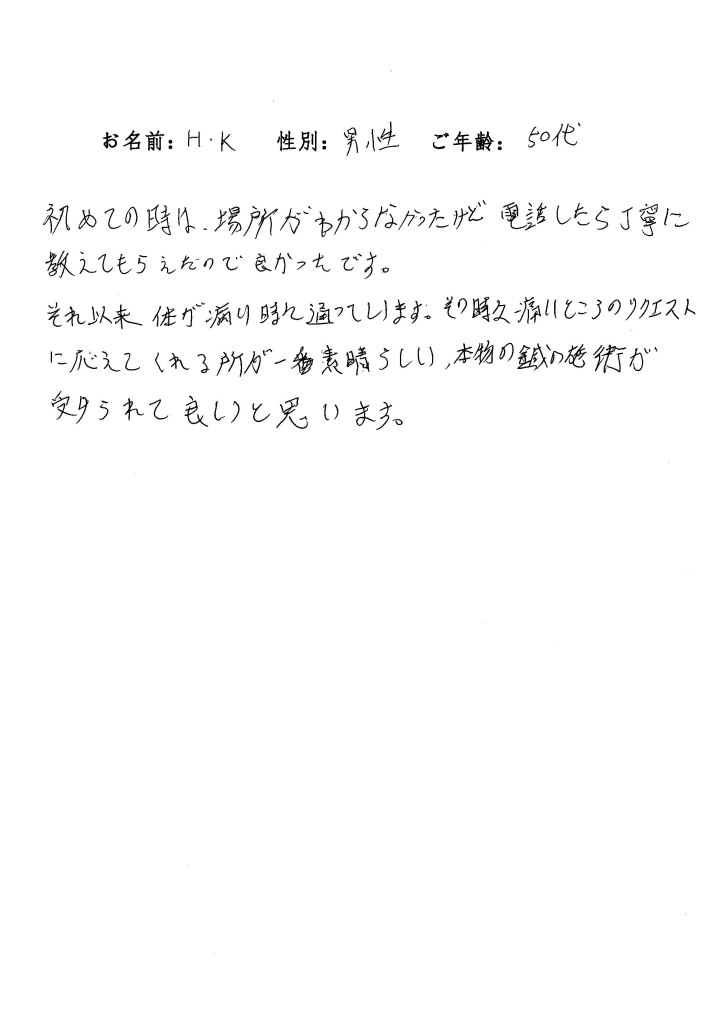 お名前：H・K 性別：男性 ご年齢：50代
初めての時は、場所がわからなかったけど 電話したら丁寧に
教えてもらえたので良かったです。
それ以来 体が痛い時に通っています。その時々痛いところのリクエスト
に応えてくれる所が一番素晴らしい、本物の鍼の施術が
受けられて良いと思います。